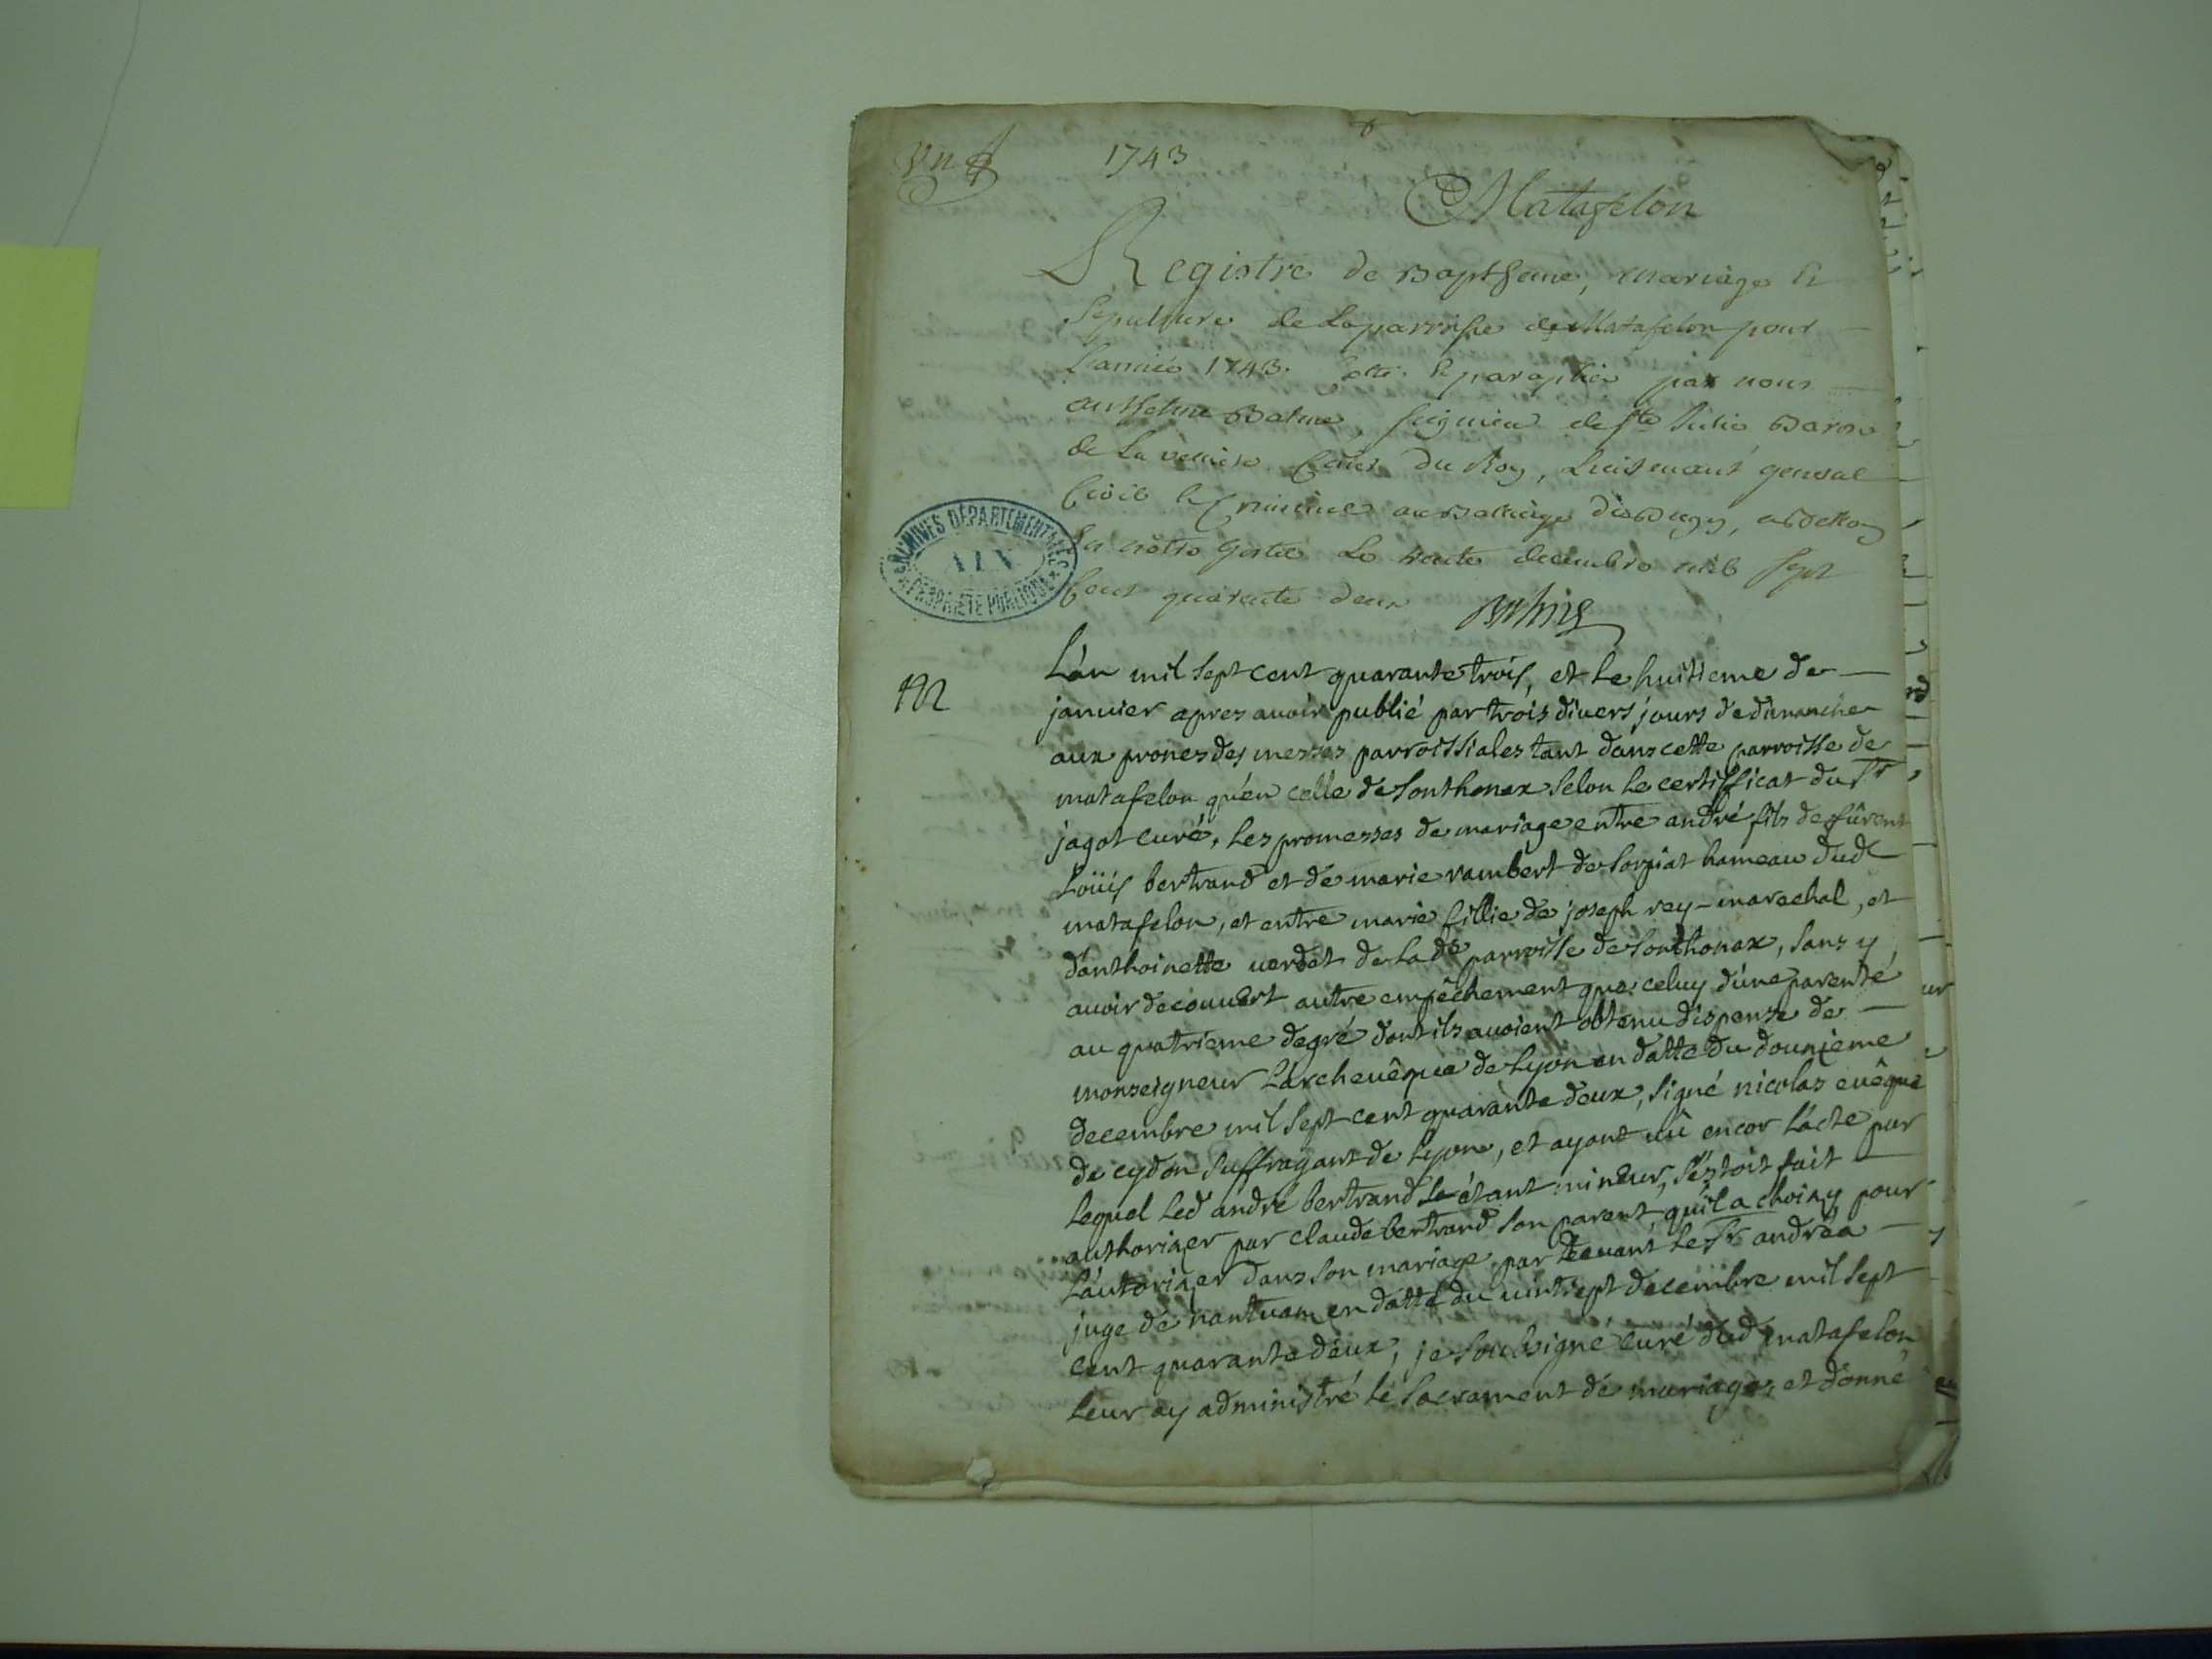 1743
Matafelon
Registre de Baptheme, Mariage &
Sepulture de La parroisse de Matafelon pour
L'année 1743. Cotté & paraphé par nous
Anthelme Balme, seigneur de Ste Julie Baron
de La Cons. Du Roy, Lieutenant general
Civil & Criminel au Balliage de Bugey,
En notre hostel Le trente decembre mil sept
Cent quarante deux
ARCHIVES DÉPARTEMENTALES
AIN
PROPRIÉTÉ PUBLIQUE
L'an mil sept cent quarante trois, et le huitieme de
janvier apres avoir publié par trois divers jours de dimanche
aux prones des messes parroissiales tant dans cette parroisse de
matafelon qu'en celle de Sonthonax selon le certifficat du Sr
jagot curé, les promesses de mariage entre andré fils de fûrent
Loüis bertrand et de marie rambert de Corgiat hameau dud
matafelon, et entre marie fillie de joseph rey marechal, et
d'anthoinette verdet de lade parroisse de Sonthonax, sans y
avoir decouvert autre empêchement que celuy d'une parenté
au quatrieme degré dont ils avoient obtenu dispense de
monseigneur L'archevêque de Lyon en datte du dounieme
decembre mil sept cent quarante deux, signé nicolas evêque
de cydon suffragant de Lyon, et ayant vû encor l'acte par
lequel led andré bertrand étant mineur, s'éstoit fait
authoriser par claude bertrand son parent qu'il a choisy pour
l'autoriser dans son mariage par devant le Sr andréa
juge de nantua en datte du vintsept decembre mil sept
cent quarante deux, je soubsigné curé dud matafelon
leur ay administré le sacrament de mariage, et donné